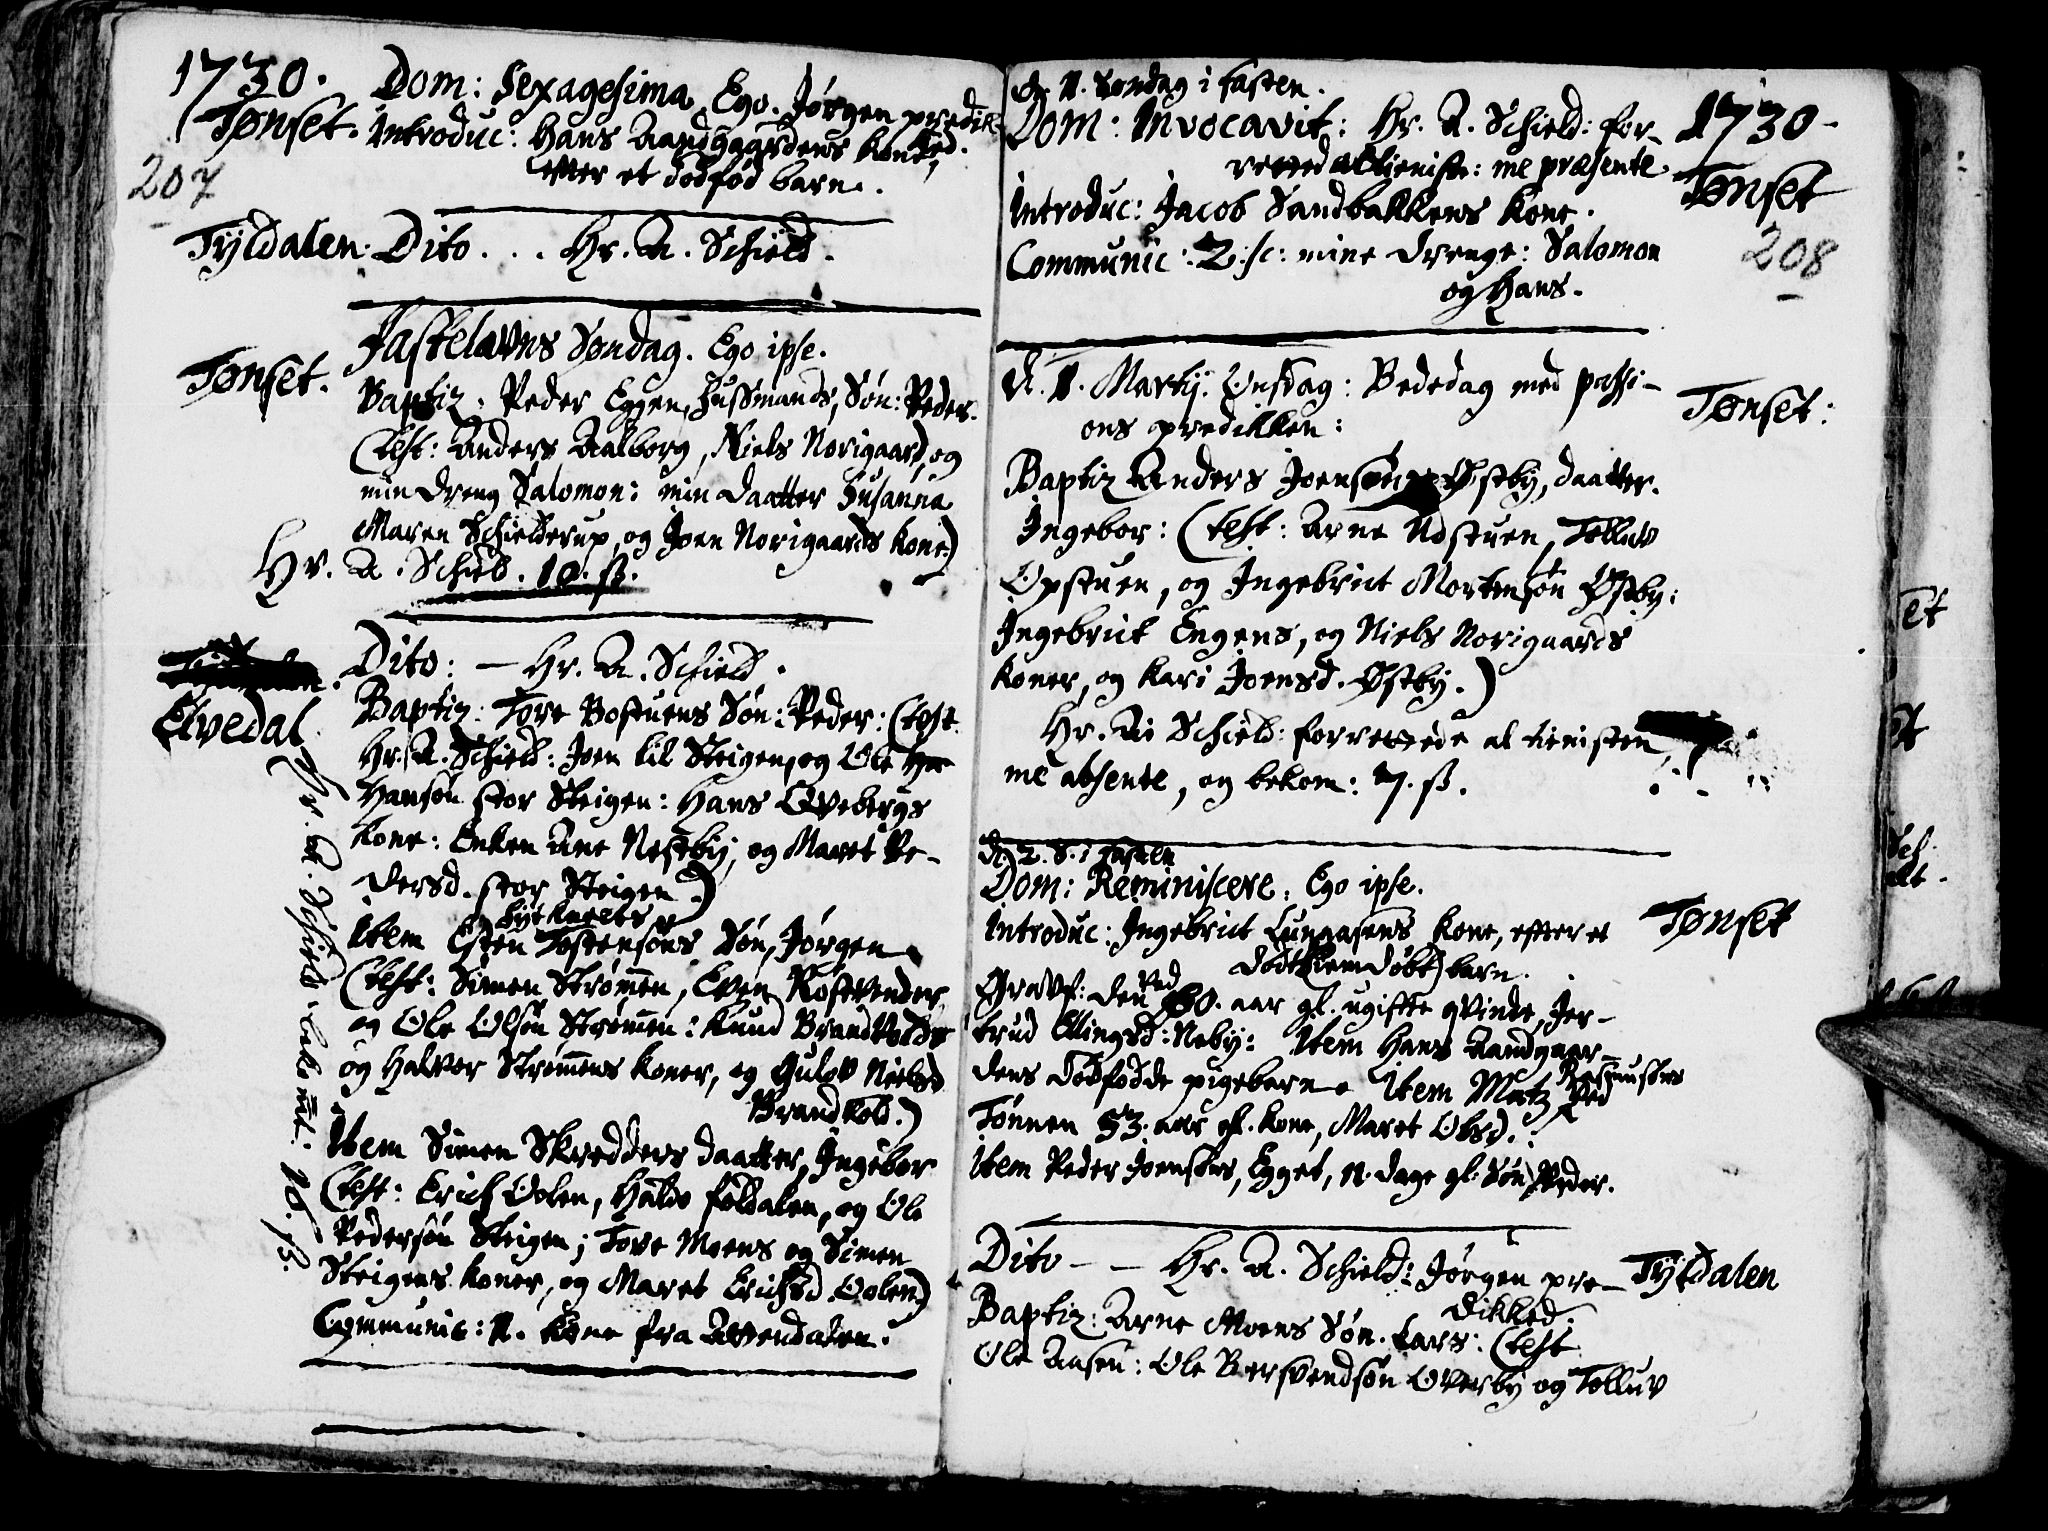 1730.
Tønset.
207
Dom: Sexagesima, Ego. Jørgen predik-
ked.
Introduc: Hans Aandgaardens kone,
etter et dødfød barn.
Tyldalen. Dito . . . Hr. A. Schield.
Fastelavns Søndag. Ego ipse.
Tønset.
Baptiz: Peder Eggen, Hussmands, Søn: Peder.
(test: Anders Aalborg, Niels Norigaard, og
min dreng Salomon: min daatter Susanna
Maren Schielderup, og Joen Norigaards kone)
Hr. A. Schield. 10. ß.
Elvedal
Dito: — Hr. A. Schield.
Baptiz: Tore Bostuens Søn: Peder: (test.
Hr. A. Schield: Joen lil Steigen, og Ole
Hansøn stor Steigen: Hans Qvebergs
kone: Enken Ane Nestby, og Maret Pe-
dersd. stor Steigen.)
Item Esten Tostensøns Søn, Jørgen
(test: Simen Strømmen, Even
og Ole Olsøn Strømmen: Knud Brandvolds
og Halvor Strømmens koner, og Gulov Nielsd
Brandvold.)
Item Simen Skredders daatter, Ingebor
(test: Erich Oolen, Halvo foldalen, og Ole
Pedersøn Steigen; Tore Moens og Simen
Steigens koner, og Maret Erichsd. Oolen)
Communic: 1. kone fra Attendalen.
Hr. A. Schield 16. ß.
d. 1. Søndag i fasten.
1730-
Tønset
208
Dom: Invocavit: Hr. A. Schield: for-
retted altienist: me præsente.
Introduc: Jacob Sandbakkens kone.
Communic: 2 :/c: mine drenge: Salomon
og Hans.
d. 1. Martij. Onsdag: Bededag med passi-
ons predikken:
Tønset:
Baptiz Anders Joensøn Østby, daatter.
Ingebor: (test: Arne Udstuen, Tolluv
Opstuen, og Ingebrict Mortensøn Østby:
Ingebrict Engens, og Niels Norigaards
koner, og Kari Joensd. Østby.)
Hr. A. Schield: forrettede al tienisten,
me absente, og bekom: 7. ß.
d. 2. S. i fasten
Dom: Reminiscere. Ego ipse.
Tønset
Introduc: Ingebrict Lunaasens kone, efter et
dødt (hiemdøbt) barn.
Gravf: den ved 80. aar gl. ugifte qvinde, Jer-
trud Ellingsd: Neby: Item Hans Aandgaar-
dens dødfødde pigebarn. Item Matz Rasmusøns
ved
Tønnen 53. aar gl. kone, Maret Olsd.
Item Peder Joensøns, Egget, 11. dage gl. Søn, Peder.
Dito - - Hr. A. Schield: Jørgen pre-
dikked.
Tyldalen
Baptiz: Arne Moens Søn. Lars: (test
Ole Aasen: Ole Bersvendsøn Overby og Tolluv